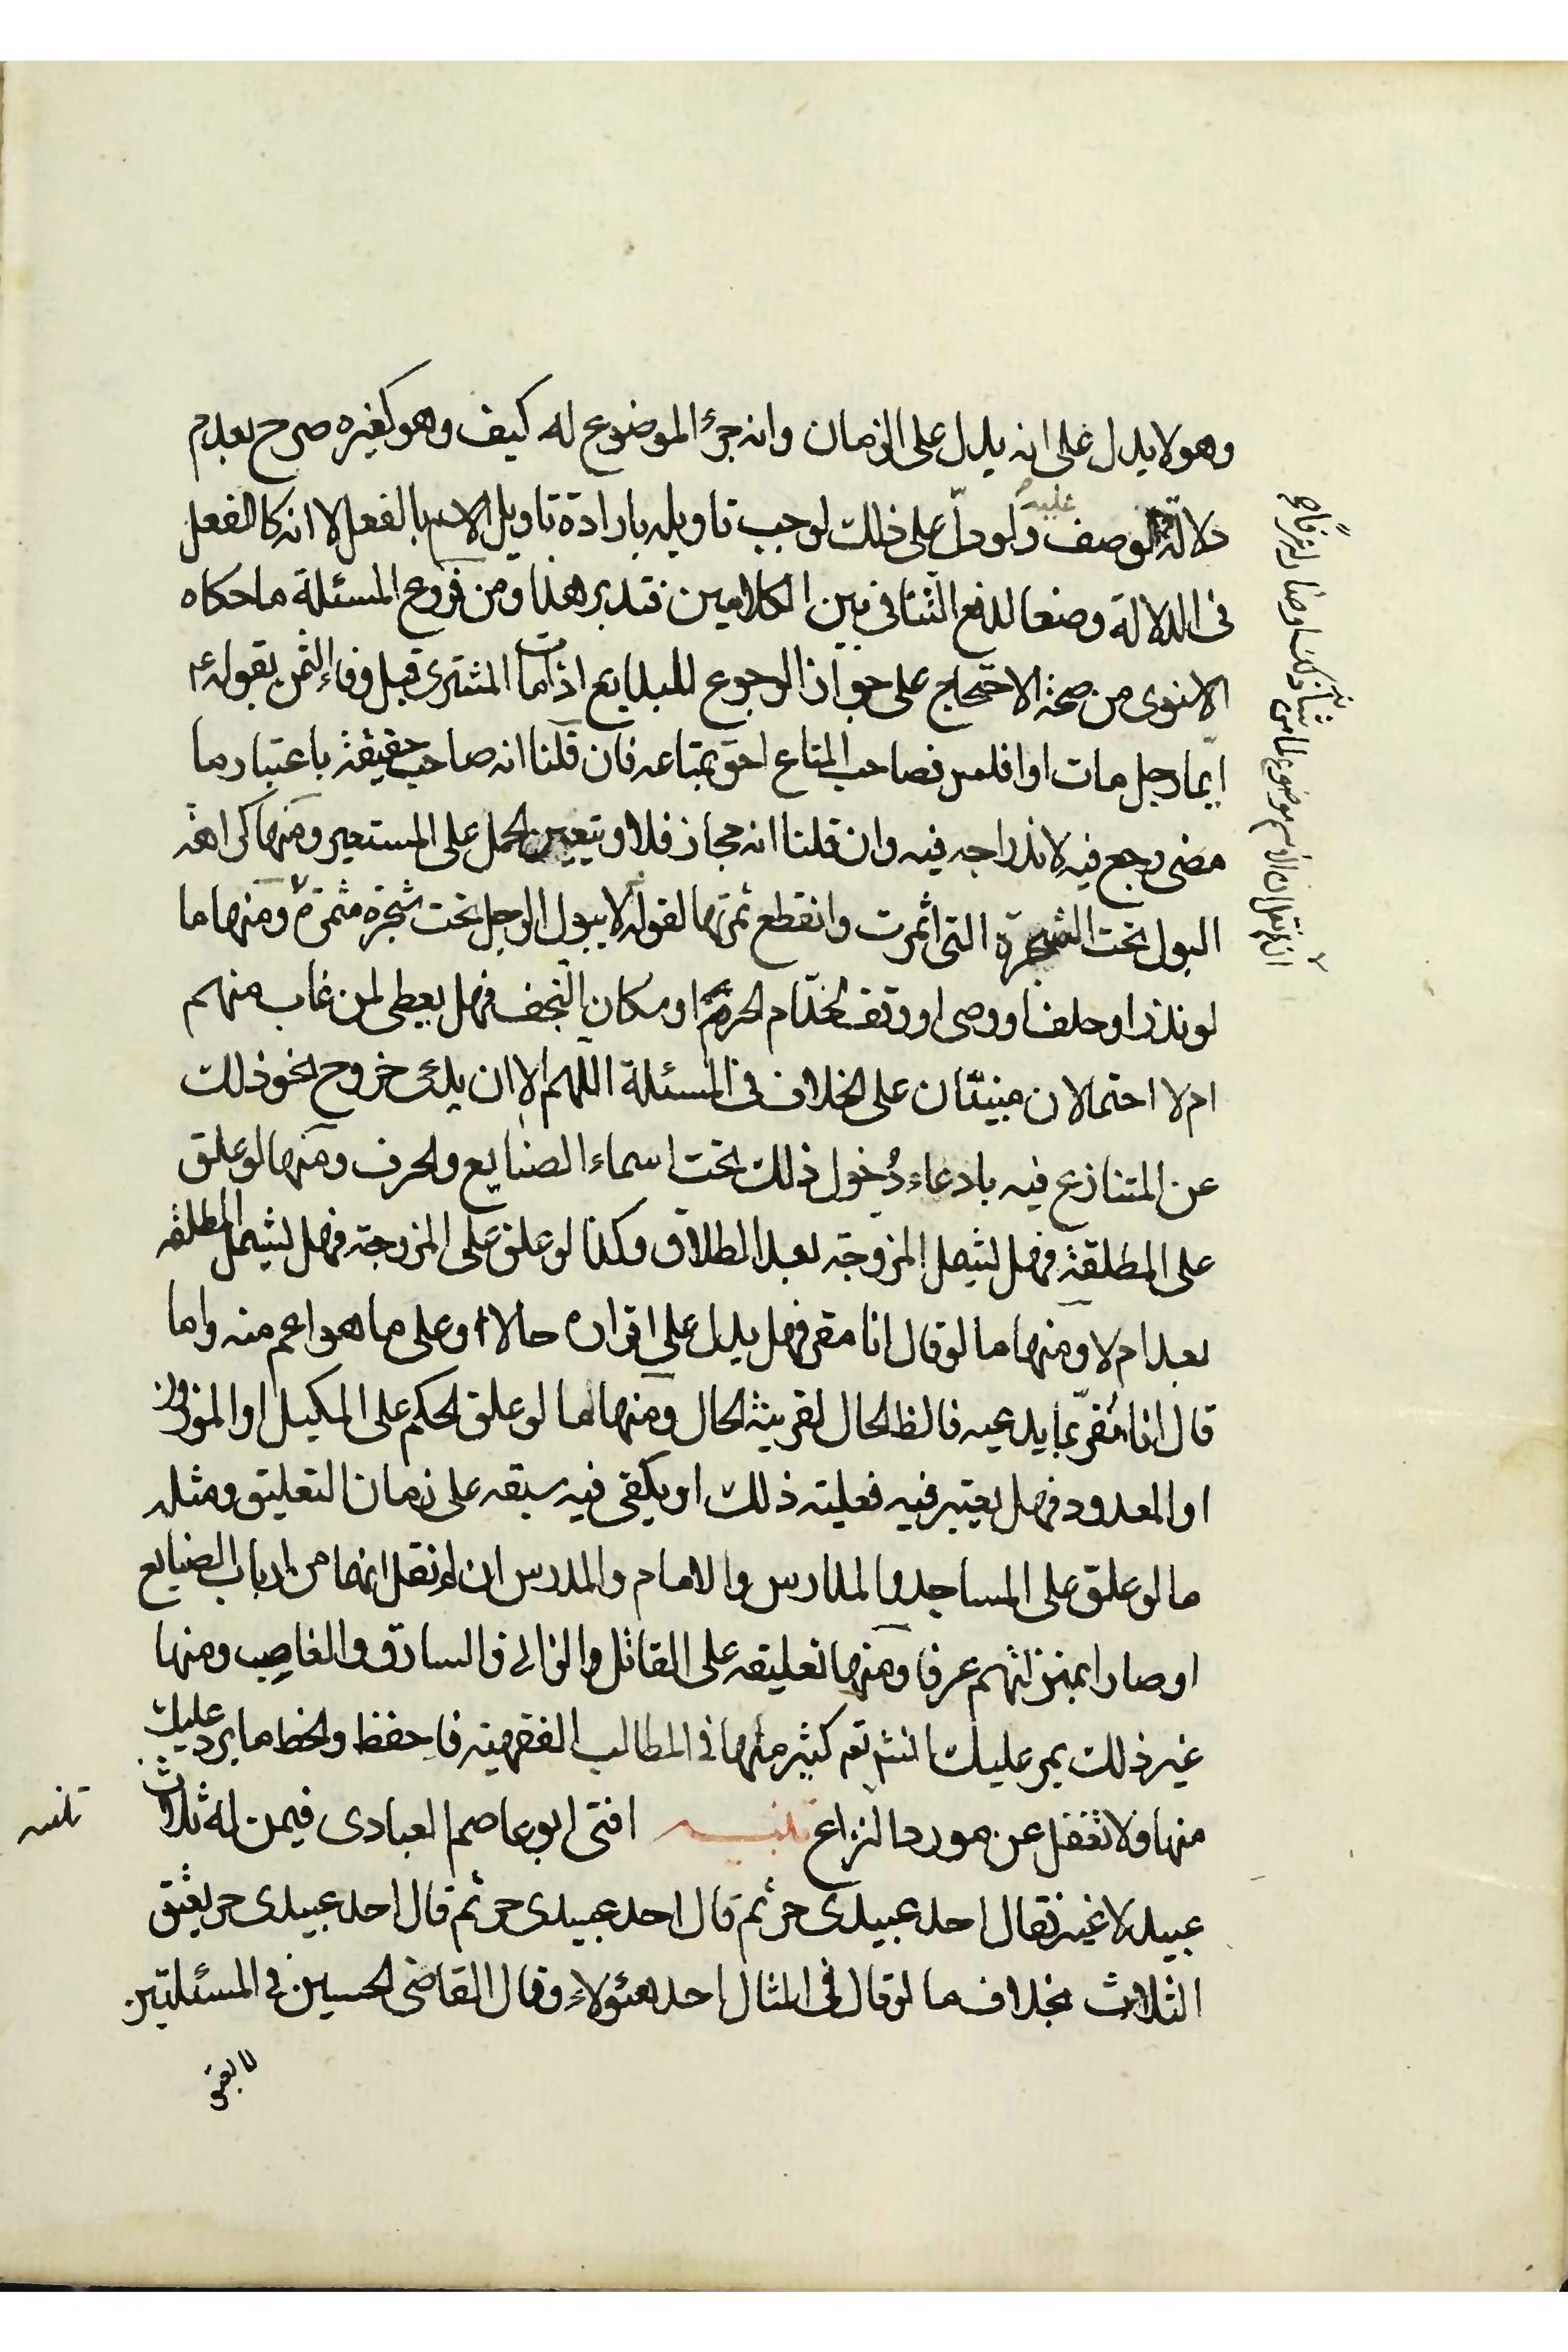 وهو لا يدل على انه يدل على الزمان وانه جزء الموضوع له كيف وهو كغيره صرح بعدم
دلالة الوصف عليه ولو دلّ على ذلك لوجب تاويله بارادة تاويل الاسم بالفعل لا انه كالفعل
فى الدلالة وضعا لدفع التنافى بين الكلامين فتدبر هذا ومن فروع المسئلة ما حكاه
الاسنوى من صحة الاحتجاج على جواز الرجوع للبايع اذا مات المشترى قبل وفاء الثمن بقوله ع
ايما رجل مات او افلس فصاحب المتاع احق بمتاعه فان قلنا انه صاحب حقيقة باعتبار ما
مضى رجع فيه لاندراجه فيه وان قلنا انه مجاز فلا ويتعين الحمل على المستعير ومنها كراهة
البول تحت الشجرة التى اثمرت وانقطع ثمرتها لقوله لا يبول الرجل تحت شجرة مثمرة ومنها ما
لو نذر او حلف او وصى او وقف لخدّام الحرم او سكان النجف فهل يعطى لمن غاب منهم
ام لا احتمالان مبنيّان على الخلاف فى المسئلة اللهم الا ان يدّعى خروج نحو ذلك
عن المتنازع فيه بادعاء دُخول ذلك تحت اسماء الصنايع والحرف ومنها لو علق
على المطلقة فهل يشمل المزوجة بعد الطلاق وكذا لو علق على المزوجة فهل يشمل المطلقه
بعد ام لا ومنها ما لو قال انا مقر فهل يدل على اقراره حالا او على ما هو اعم منه واما
قال انا مُقرّ بما يدعيه فالظ الحال لقرينة الحال ومنها ما لو علق الحكم على المكيل او الموزون
او المعدود فهل يعتبر فيه فعليته ذلك او يكفى فيه سبقه على زمان التعليق ومثله
ما لو علق على المساجد والمدارس والامام والمدرس ان لم نقل انهما من ارباب الصنايع
او صارا بمنزلتهم عرفا ومنها تعليقه على القاتل والزانى والسارق والغاصب ومنها
غير ذلك يمر عليك انش تعم كثير منها فى المطالب الفقهية فاحفظ ولاحظ ما يرد عليك
منها ولا تغفل عن مورد النزاع تنبيه افتى ابو عاصم العبادى فيمن له ثلاث
تنبيه
عبيد لا غير فقال احد عبيدى حر ثم قال احد عبيدى حر ثم قال احد عبيدى حر يعتق
الثلاث بخلاف ما لو قال فى المثال احد هئولاء وقال القاضى الحسين فى المسئلتين
لا يعتق